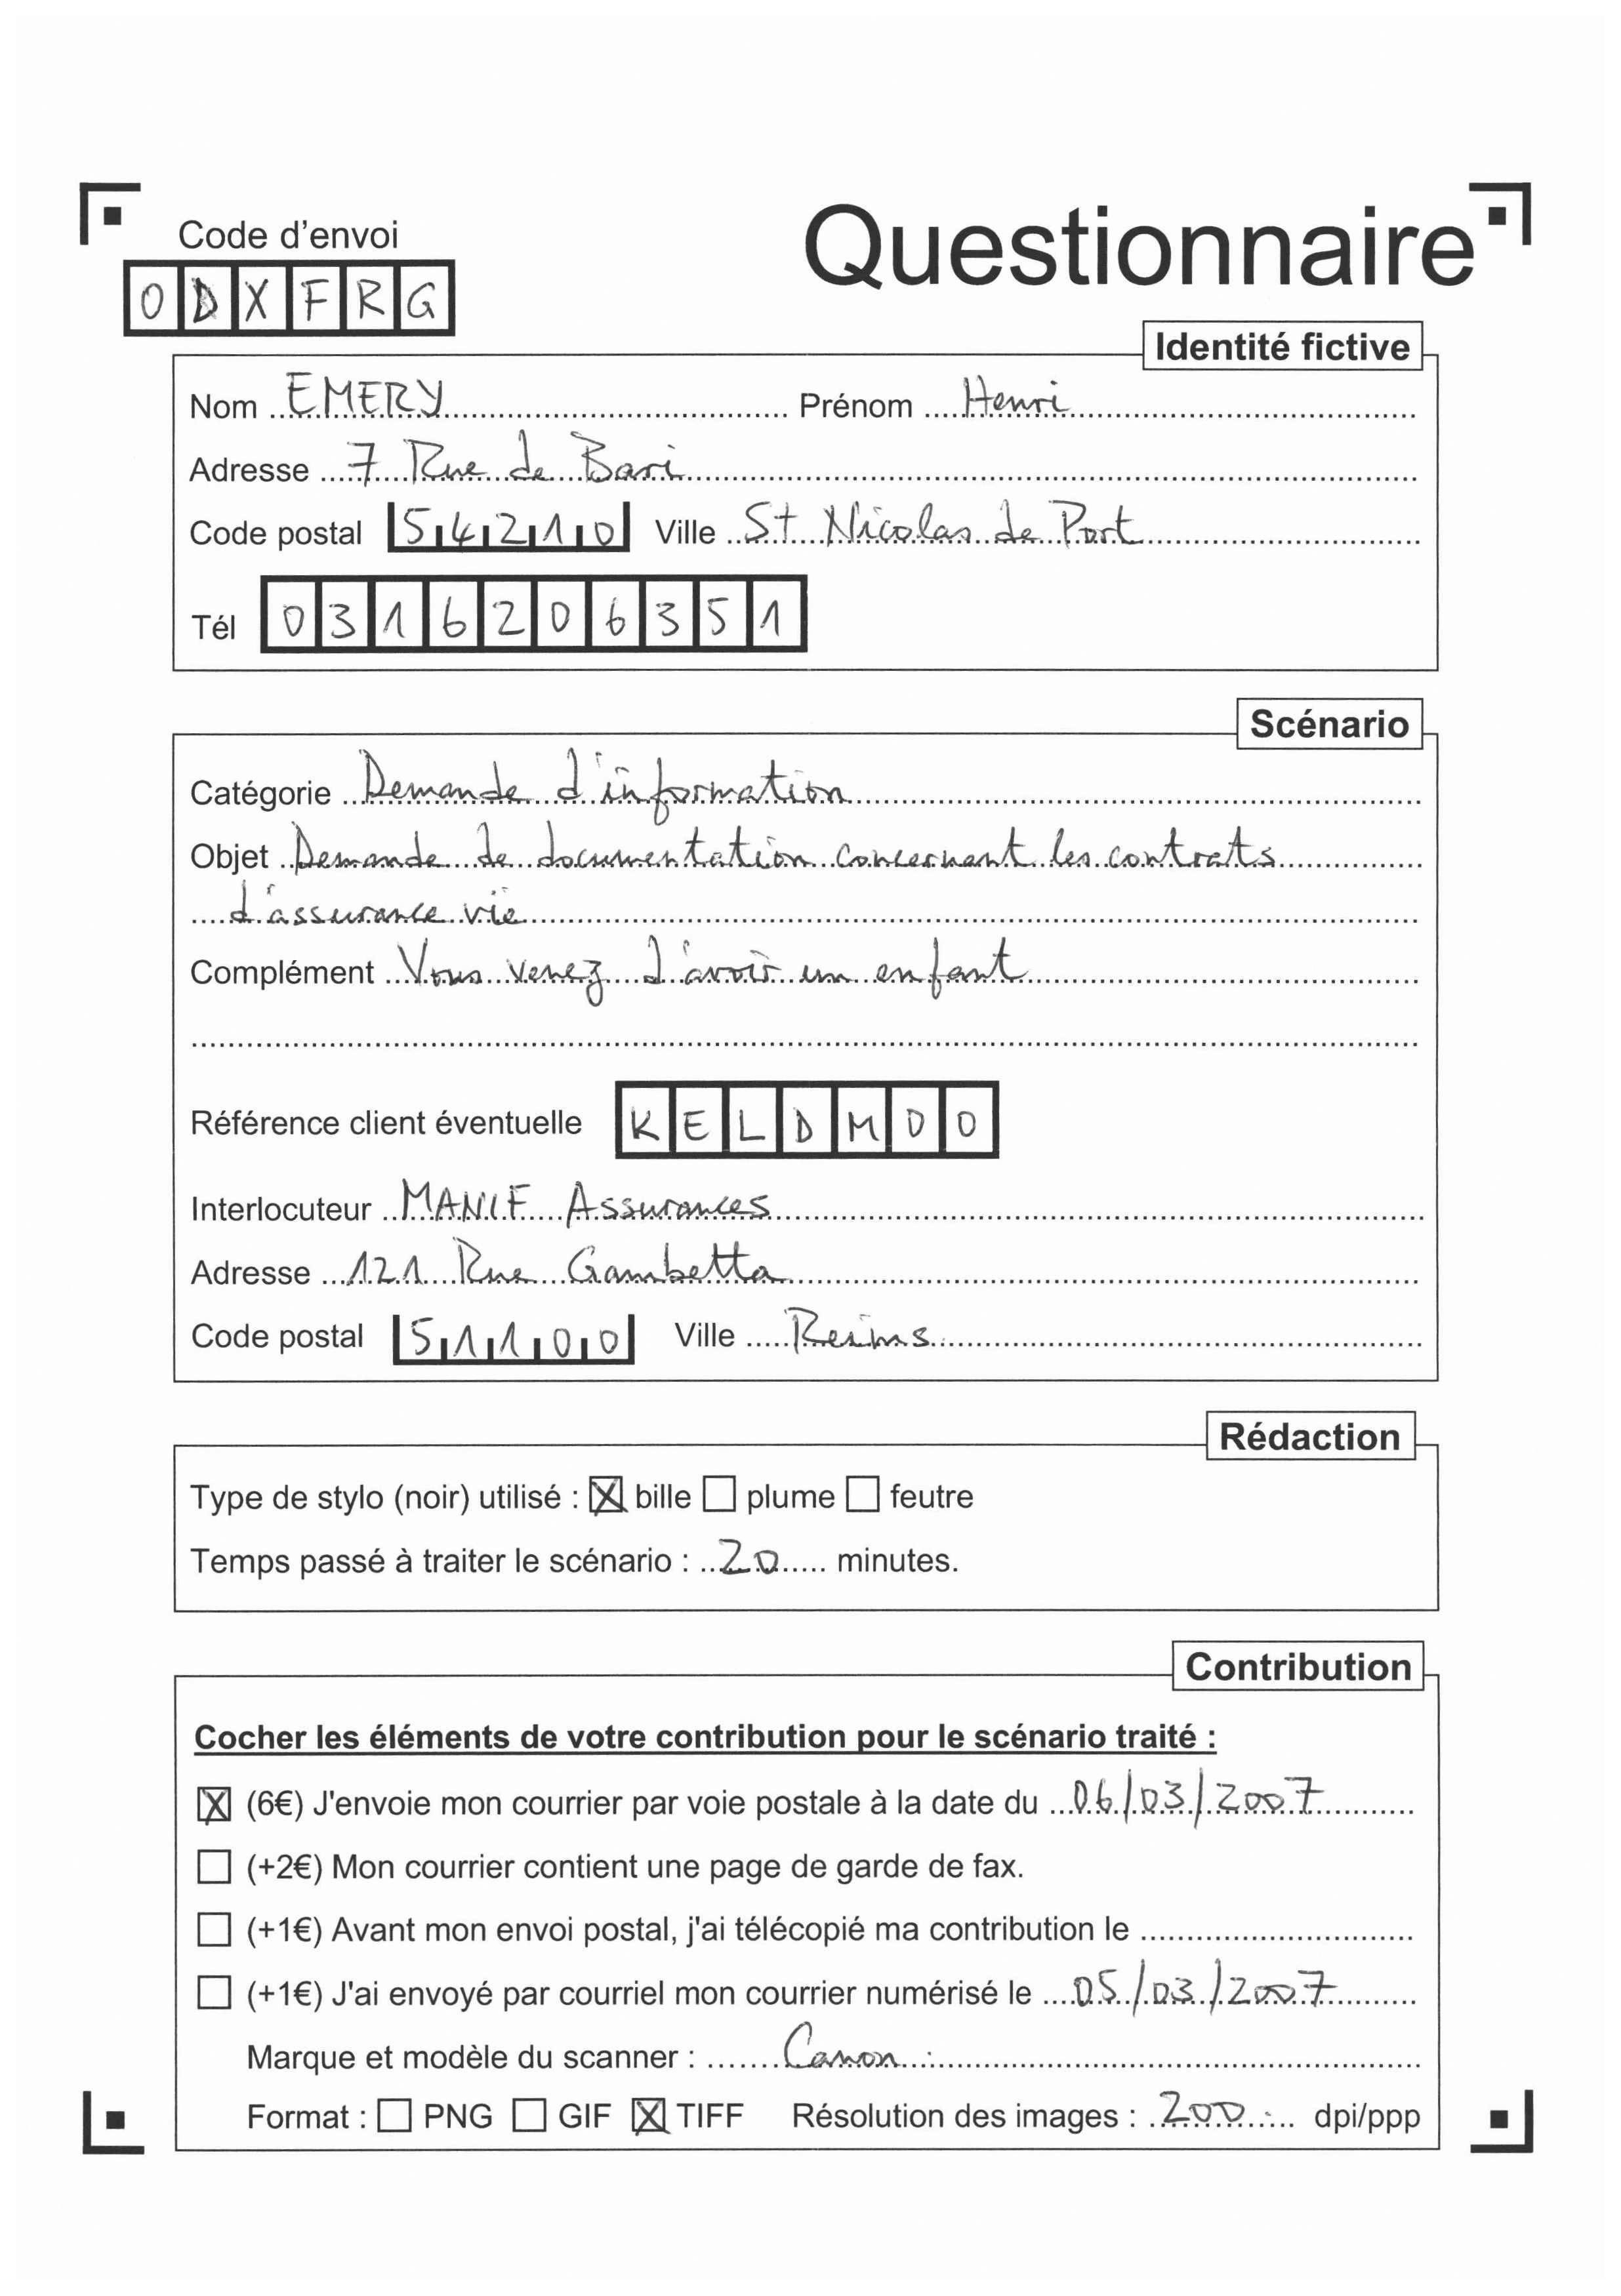 Code d'envoi
Questionnaire
ODXFRG
Identité fictive
Nom EMERY Prénom Henri
Adresse 7 Rue de Bari
Code postal 54210 Ville St Nicolas de Port
Tél 0316206351
Scénario
Catégorie Demande d'information
Objet Demande de documentation concernant les contrats
d'assurance vie
Complément Vous venez d'avoir un enfant
Référence client éventuelle KELDMOO
Interlocuteur MANIF Assurances
Adresse 121 Rue Gambetta
Code postal 51100 Ville Reims
Rédaction
Type de stylo (noir) utilisé : ☒ bille ☐ plume ☐ feutre
Temps passé à traiter le scénario : 20 minutes.
Contribution
Cocher les éléments de votre contribution pour le scénario traité :
☒ (6€) J'envoie mon courrier par voie postale à la date du 06/03/2007
☐ (+2€) Mon courrier contient une page de garde de fax.
☐ (+1€) Avant mon envoi postal, j'ai télécopié ma contribution le
☐ (+1€) J'ai envoyé par courriel mon courrier numérisé le 05/03/2007
Marque et modèle du scanner : Canon
Format : ☐ PNG ☐ GIF ☒ TIFF Résolution des images : 200 dpi/ppp